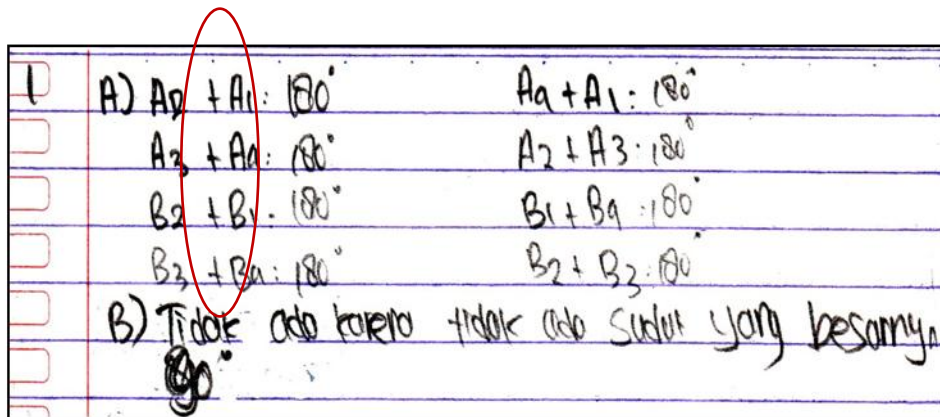 1 A) A2 + A1 : 180° A4 + A1 : 180°
A3 + A4 : 180° A2 + A3 : 180°
B2 + B1 : 180° B1 + B4 : 180°
B3 + B4 : 180° B2 + B3 : 180°
B) Tidak ada karena tidak ada sudut yang besarnya
90°